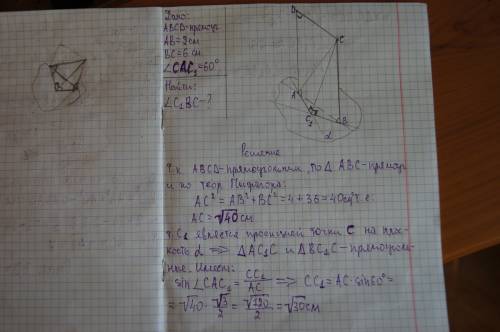 Дано:
ABCD-прямоуг.
AB=2см
BC=6 см
∠CAC₁=60°
Найти:
∠C₁BC-?
D
C
A
C₁
B
α
Решение
Т.к. ABCD-прямоугольник, то Δ ABC-прямоуг
и по теор. Пифагора:
AC²=AB²+BC²=4+36=40см², т.е.
AC=√40см
т.C₁ является проекцией точки C на плос-
кость α ⟹ ΔAC₁C и ΔBC₁C-прямоуголь-
ные. Имеем:
sin∠CAC₁=CC₁/AC ⟹ CC₁=AC·sin60°=
=√40·√3/2=√120/2=√30см